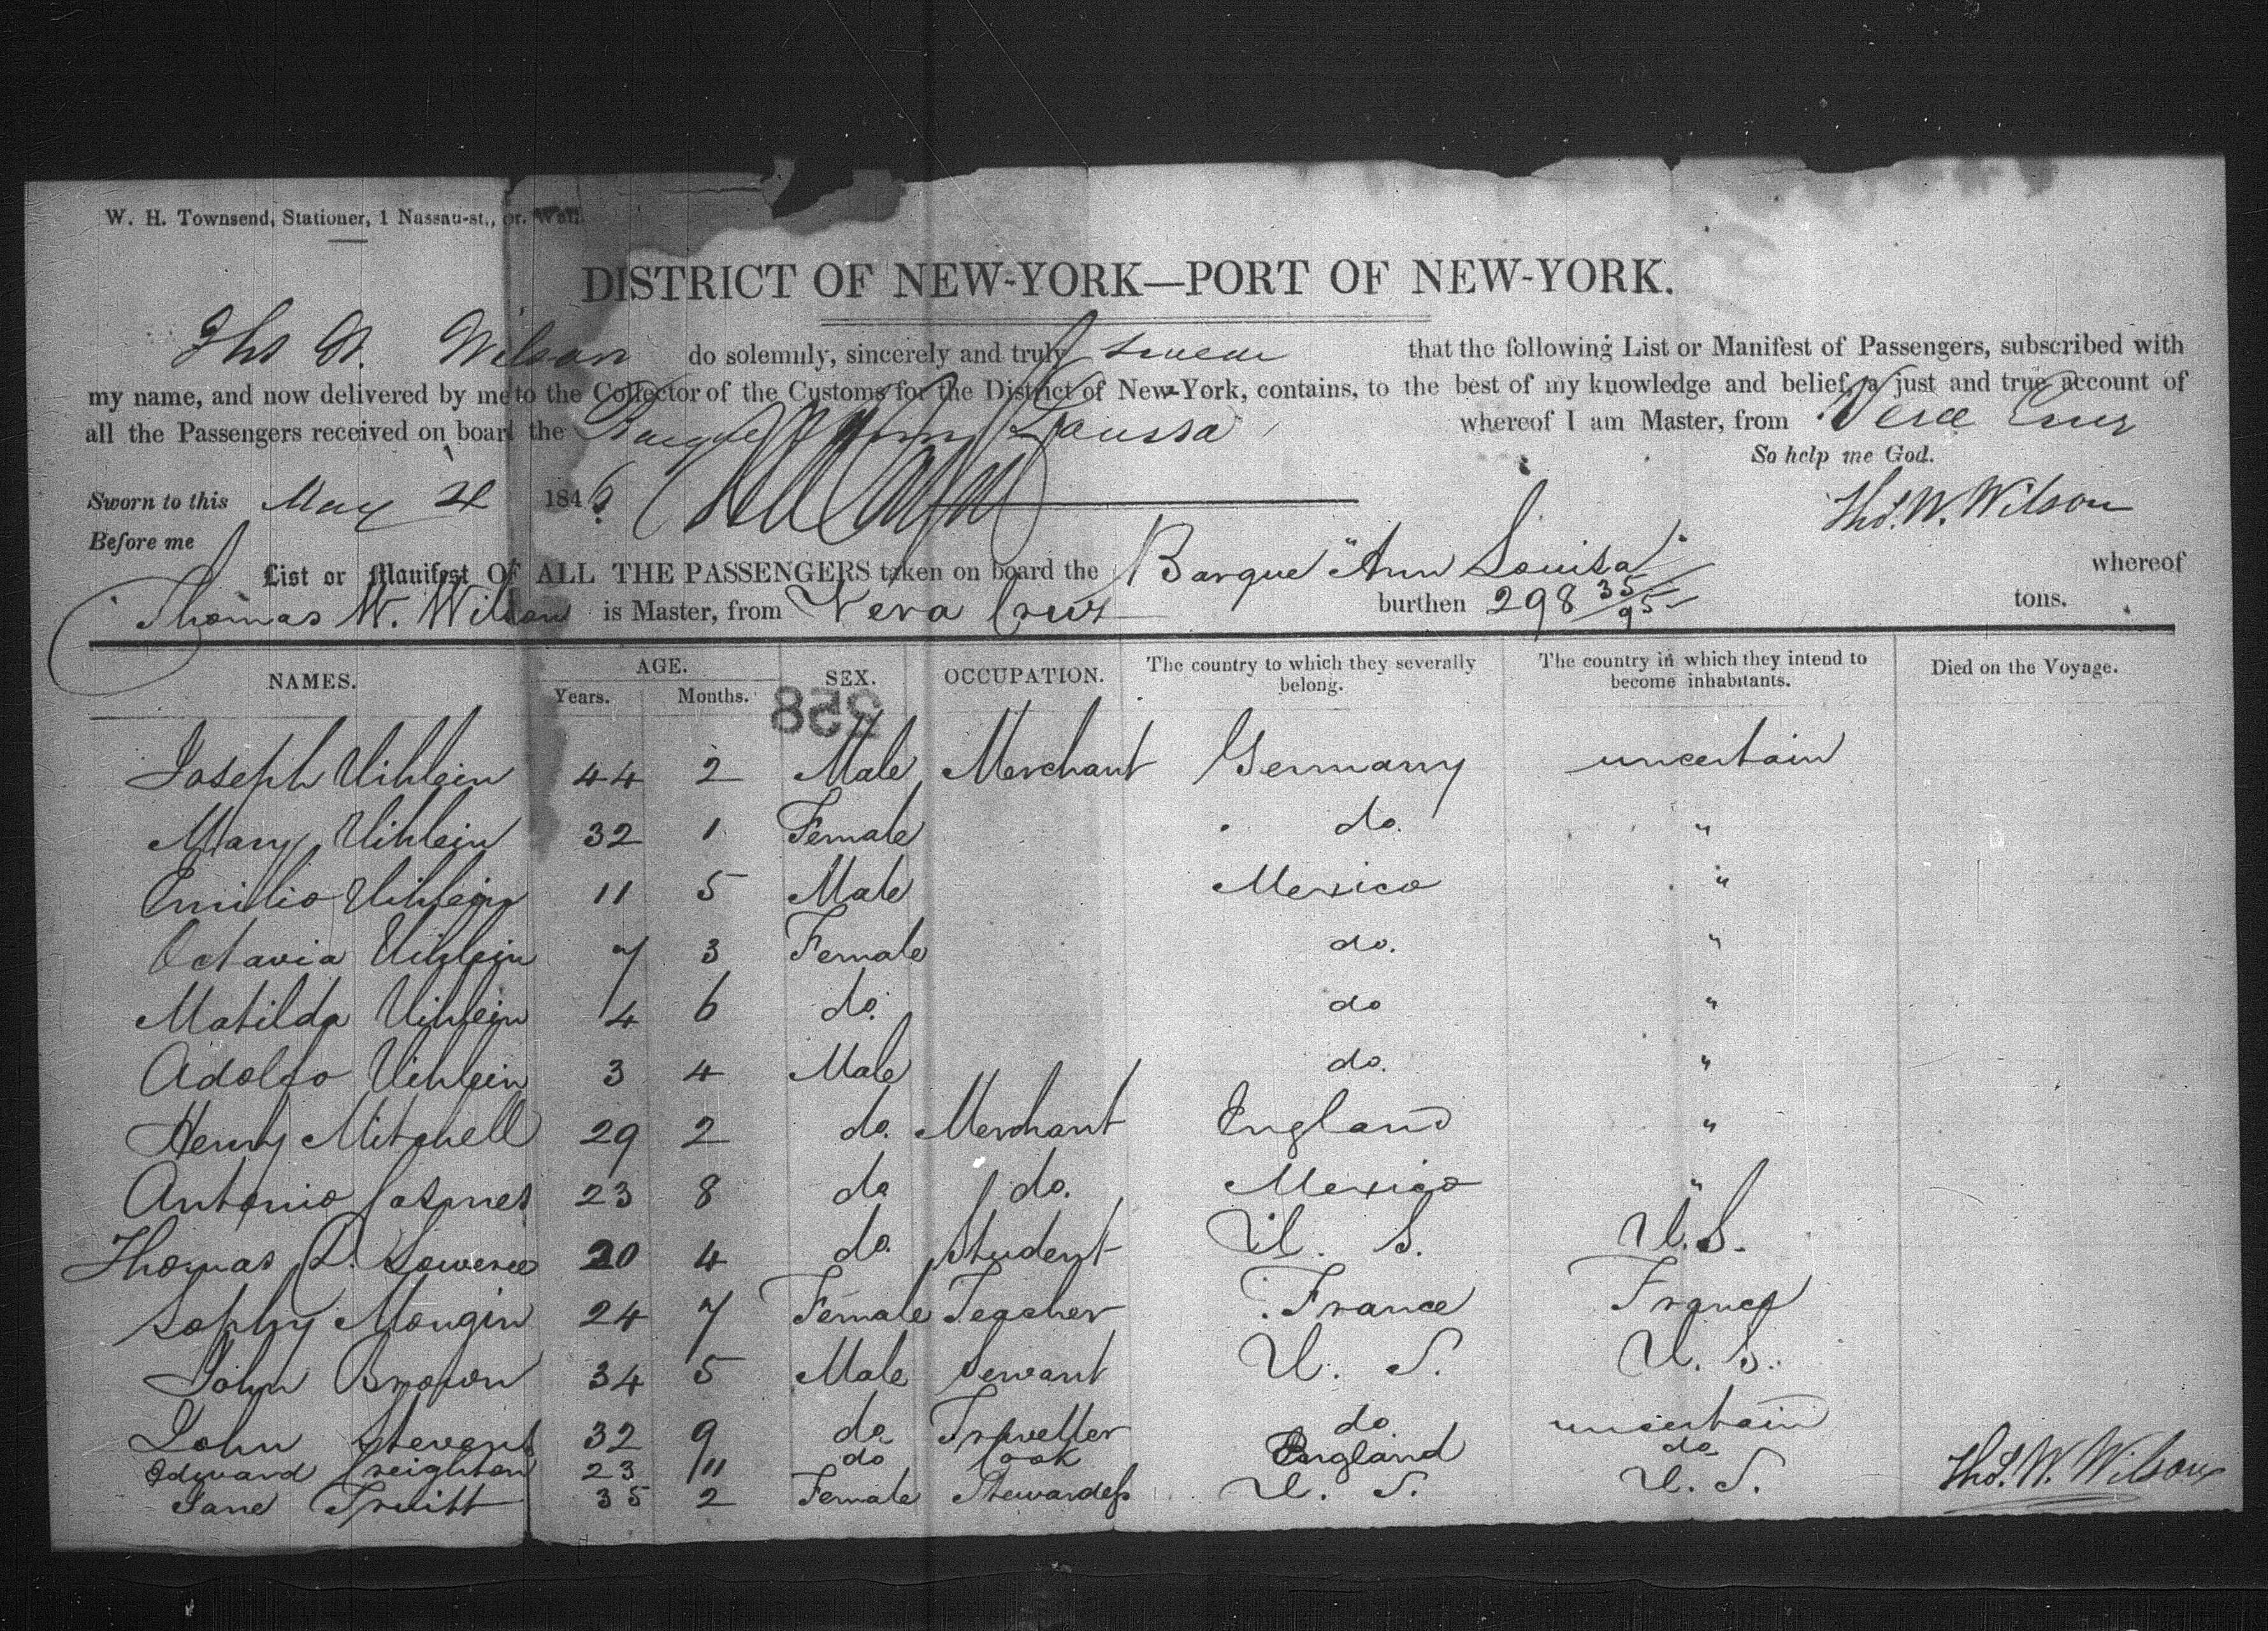 W. H. Townsend, Stationer, 1 Nassau-st., cr. Wall.
DISTRICT OF NEW-YORK—PORT OF NEW-YORK.
Thos W. Wilson do solemnly, sincerely and truly swear that the following List or Manifest of Passengers, subscribed with
my name, and now delivered by me to the Collector of the Customs for the District of New-York, contains, to the best of my knowledge and belief, a just and true account of
all the Passengers received on board the Barque Ann Louissa whereof I am Master, from Vera Cruz
So help me God.
Sworn to this May 4 1846 Thos. W. Wilson
Before me
List or Manifest OF ALL THE PASSENGERS taken on board the Barque "Ann Louisa" whereof
Thomas W. Wilson is Master, from Vera Cruz burthen 298 35/95 tons.
NAMES. AGE. SEX. OCCUPATION. The country to which they severally belong. The country in which they intend to become inhabitants. Died on the Voyage.
Years. Months.
358
Joseph Uihlein 44 2 Male Merchant Germany uncertain
Mary Uihlein 32 1 Female do. "
Emilio Uihlein 11 5 Male Mexico "
Octavia Uihlein 7 3 Female do. "
Matilda Uihlein 4 6 do. do "
Adolfo Uihlein 3 4 Male do. "
Henry Mitchell 29 2 do. Merchant England "
Antonio 23 8 do do. Mexico "
Thomas 20 4 do. Student U. S. U. S.
Sophy Mongin 24 7 Female Teacher France France
John Brown 34 5 Male Servant U. S. U. S.
John Stevens 32 9 do Traveller do uncertain
Edward Creighton 23 11 do Cook England do
Jane Truitt 35 2 Female Stewardess U. S. U. S.
Thos. W. Wilson